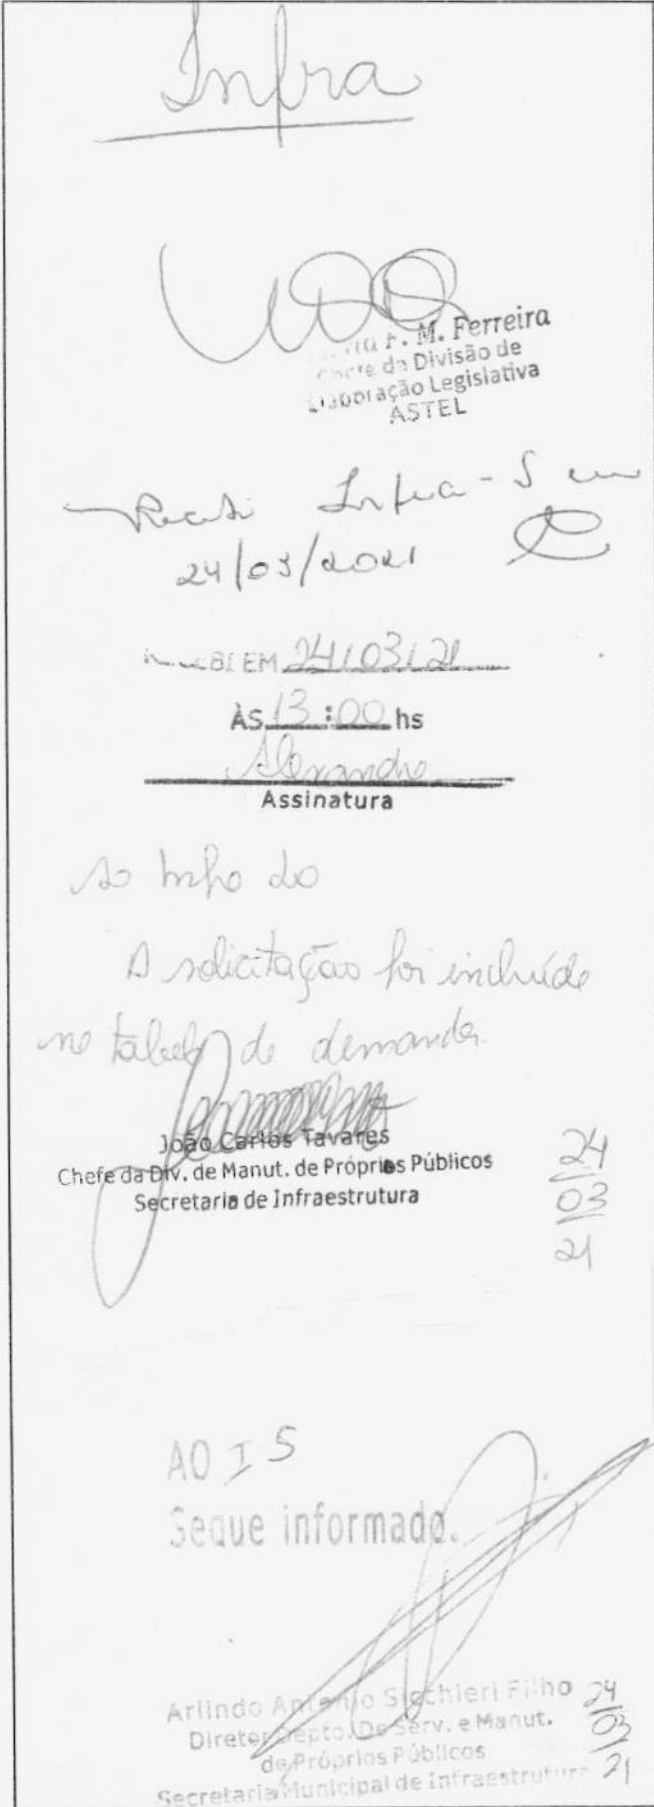 Infra
F. M. Ferreira
Chefe da Divisão de
Elaboração Legislativa
ASTEL
Recebi Infra-S em
24/03/2021
EM 24/03/21
ÀS 13:00 hs
Alexandre
Assinatura
A solicitação foi incluída
na tabela de demanda.
João Carlos Tavares
Chefe da Div. de Manut. de Próprios Públicos
Secretaria de Infraestrutura
24
03
21
AO I S
Segue informado.
Arlindo Antonio Sicchieri Filho
Diretor Depto. De Serv. e Manut.
de Próprios Públicos
Secretaria Municipal de Infraestrutura
24
03
21